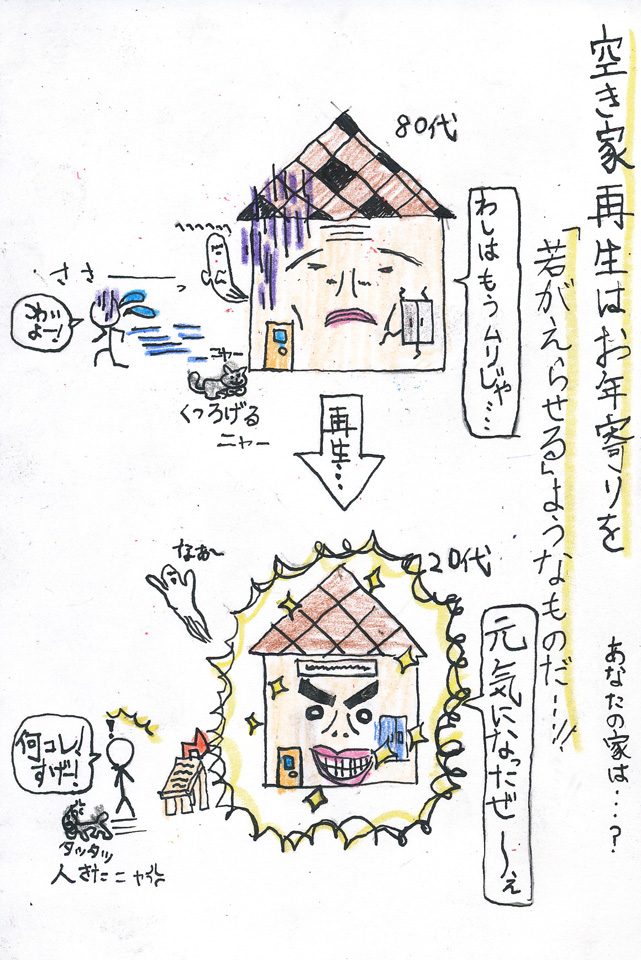 空き家再生はお年寄りを
「若がえらせる」ようなものだ…!!
あなたの家は…?
80代
わしはもうムリじゃ…
さささーーっ
ニャー
くつろげる
ニャー
再生…
20代
元気になったぜ〜ぇ
なぁ〜
何コレ!
すげー!
!
タッタッ
人きたニャ